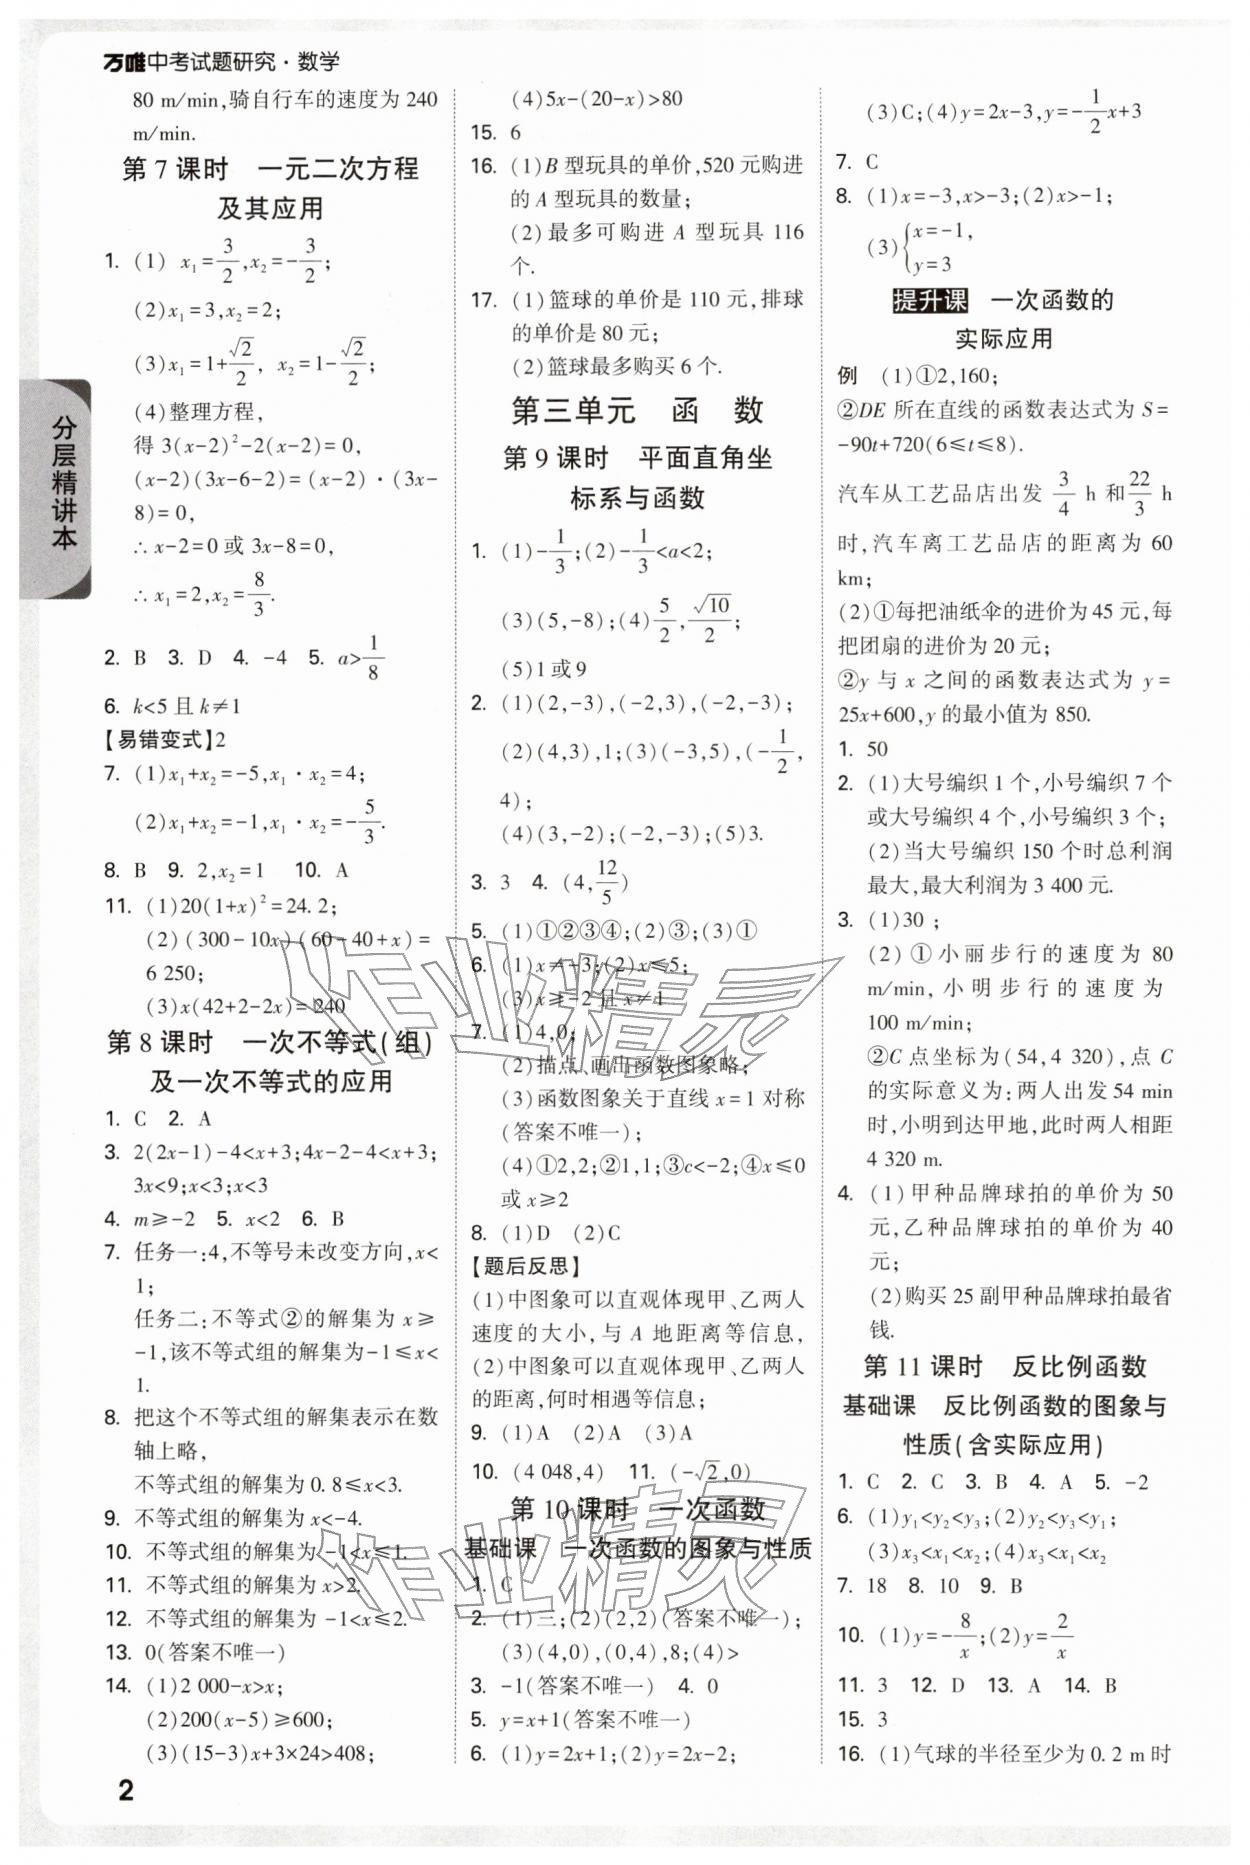 万唯中考试题研究·数学
分层精讲本
80 m/min,骑自行车的速度为 240
m/min.
第 7 课时　一元二次方程
及其应用
1. (1) x₁=3/2,x₂=-3/2;
(2)x₁=3,x₂=2;
(3)x₁=1+√2/2, x₂=1-√2/2;
(4)整理方程,
得 3(x-2)²-2(x-2)=0,
(x-2)(3x-6-2)=(x-2)·(3x-
8)=0,
∴x-2=0 或 3x-8=0,
∴x₁=2,x₂=8/3.
2. B 3. D 4. -4 5. a>1/8
6. k<5 且 k≠1
【易错变式】2
7. (1)x₁+x₂=-5,x₁·x₂=4;
(2)x₁+x₂=-1,x₁·x₂=-5/3.
8. B 9. 2,x₂=1 10. A
11. (1)20(1+x)²=24.2;
(2)(300-10x)(60-40+x)=
6 250;
(3)x(42+2-2x)=240
第 8 课时　一次不等式(组)
及一次不等式的应用
1. C 2. A
3. 2(2x-1)-4<x+3;4x-2-4<x+3;
3x<9;x<3;x<3
4. m≥-2 5. x<2 6. B
7. 任务一:4,不等号未改变方向,x<
1;
任务二:不等式②的解集为 x≥
-1,该不等式组的解集为-1≤x<
1.
8. 把这个不等式组的解集表示在数
轴上略,
不等式组的解集为 0.8≤x<3.
9. 不等式组的解集为 x<-4.
10. 不等式组的解集为 -1<x≤1.
11. 不等式组的解集为 x>2.
12. 不等式组的解集为 -1<x≤2.
13. 0(答案不唯一)
14. (1)2 000-x>x;
(2)200(x-5)≥600;
(3)(15-3)x+3×24>408;
(4)5x-(20-x)>80
15. 6
16. (1)B 型玩具的单价,520 元购进
的 A 型玩具的数量;
(2)最多可购进 A 型玩具 116
个.
17. (1)篮球的单价是 110 元,排球
的单价是 80 元;
(2)篮球最多购买 6 个.
第三单元　函　数
第 9 课时　平面直角坐
标系与函数
1. (1)-1/3;(2)-1/3<a<2;
(3)(5,-8);(4)5/2,√10/2;
(5)1 或 9
2. (1)(2,-3),(-2,3),(-2,-3);
(2)(4,3),1;(3)(-3,5),(-1/2,
4);
(4)(3,-2);(-2,-3);(5)3.
3. 3 4. (4,12/5)
5. (1)①②③④;(2)③;(3)①
6. (1)x≠-3;(2)x≤5;
(3)x≥-2 且 x≠1
7. (1)4,0;
(2)描点、画出函数图象略;
(3)函数图象关于直线 x=1 对称
(答案不唯一);
(4)①2,2;②1,1;③c<-2;④x≤0
或 x≥2
8. (1)D (2)C
【题后反思】
(1)中图象可以直观体现甲、乙两人
速度的大小,与 A 地距离等信息,
(2)中图象可以体现甲、乙两人
的距离,何时相遇等信息;
9. (1)A (2)A (3)A
10. (4 048,4) 11. (-√2,0)
第 10 课时　一次函数
基础课　一次函数的图象与性质
1. C
2. (1)三;(2)(2,2)(答案不唯一);
(3)(4,0),(0,4),8;(4)>
3. -1(答案不唯一) 4. 0
5. y=x+1(答案不唯一)
6. (1)y=2x+1;(2)y=2x-2;
(3)C;(4)y=2x-3,y=-1/2x+3
7. C
8. (1)x=-3,x>-3;(2)x>-1;
(3){x=-1,
y=3
提升课　一次函数的
实际应用
例 (1)①2,160;
②DE 所在直线的函数表达式为 S=
-90t+720(6≤t≤8).
汽车从工艺品店出发 3/4 h 和22/3 h
时,汽车离工艺品店的距离为 60
km;
(2)①每把油纸伞的进价为 45 元,每
把团扇的进价为 20 元;
②y 与 x 之间的函数表达式为 y=
25x+600,y 的最小值为 850.
1. 50
2. (1)大号编织 1 个,小号编织 7 个
或大号编织 4 个,小号编织 3 个;
(2)当大号编织 150 个时总利润
最大,最大利润为 3 400 元.
3. (1)30 ;
(2)①小丽步行的速度为 80
m/min,小明步行的速度为
100 m/min;
②C 点坐标为(54,4 320),点 C
的实际意义为:两人出发 54 min
时,小明到达甲地,此时两人相距
4 320 m.
4. (1)甲种品牌球拍的单价为 50
元,乙种品牌球拍的单价为 40
元;
(2)购买 25 副甲种品牌球拍最省
钱.
第 11 课时　反比例函数
基础课　反比例函数的图象与
性质(含实际应用)
1. C 2. C 3. B 4. A 5. -2
6. (1)y₁<y₂<y₃;(2)y₂<y₃<y₁;
(3)x₃<x₁<x₂;(4)x₃<x₁<x₂
7. 18 8. 10 9. B
10. (1)y=-8/x;(2)y=2/x
11. 3 12. D 13. A 14. B
15. 3
16. (1)气球的半径至少为 0.2 m 时
作业精灵
作业精灵
2